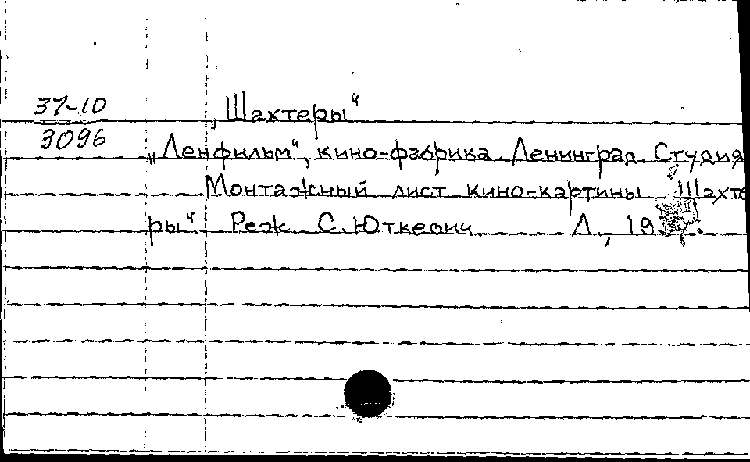 37-10
3096
„Шахтеры“
„Ленфильм“, кино-фабрика. Ленинград. Студия
Монтажный лист кино-картины „Шахте
ры“. Реж. С. Юткевич. Л.,